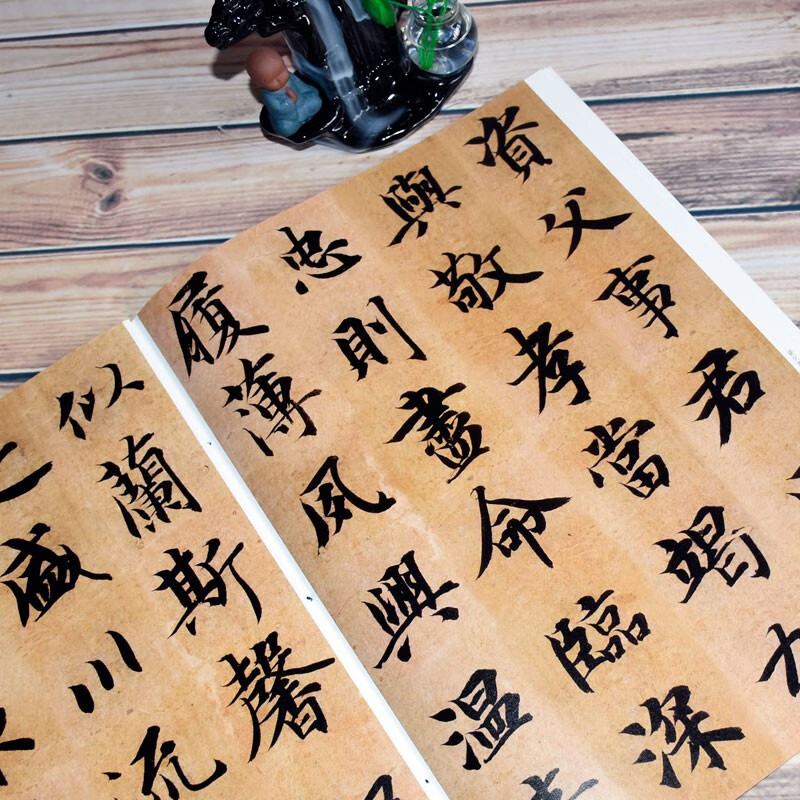 資父事君
與敬孝當竭力
忠則盡命臨深
履薄夙興溫
似蘭斯馨
盛川流